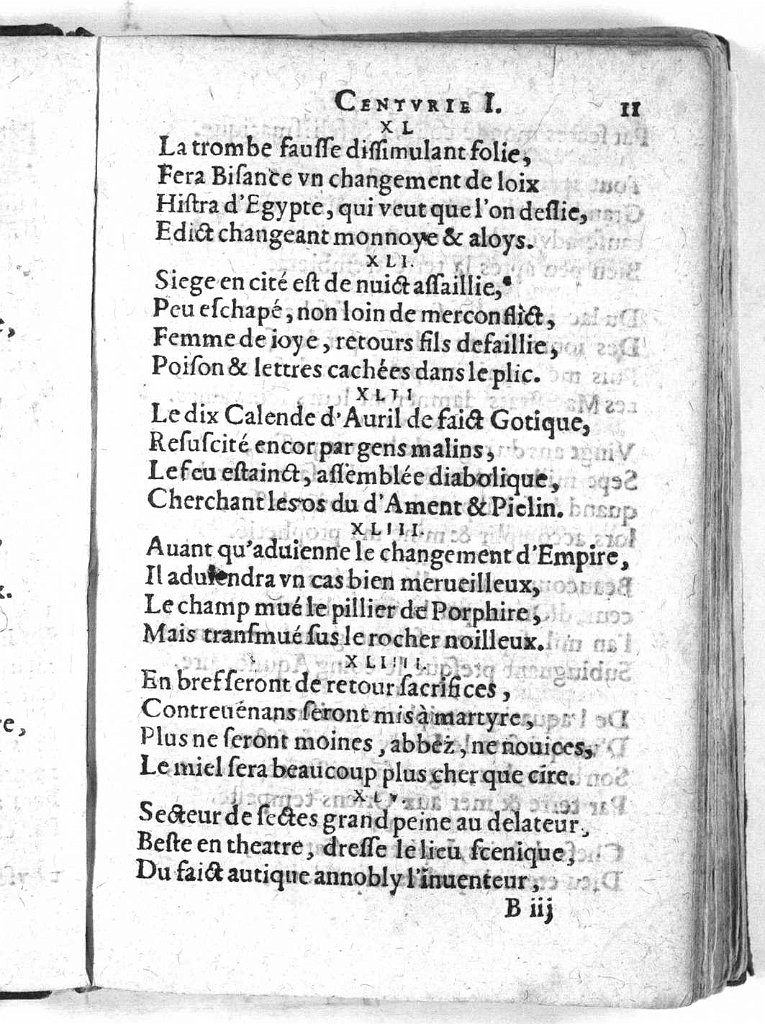 CENTVRIE I. 11
XL
La trombe fauſſe diſſimulant folie,
Fera Biſance vn changement de loix
Hiſtra d'Egypte, qui veut que l'on deſlie,
Edict changeant monnoye & aloys.
XLI.
Siege en cité eſt de nuict aſſaillie,
Peu eſchapé, non loin de mer conflict,
Femme de ioye, retours fils defaillie,
Poiſon & lettres cachées dans le plic.
XLII
Le dix Calende d'Auril de faict Gotique,
Reſuſcité encor par gens malins,
Le feu eſtainct, aſſemblée diabolique,
Cherchant les os du d'Ament & Pſelin.
XLIII.
Auant qu'aduienne le changement d'Empire,
Il aduiendra vn cas bien merueilleux,
Le champ mué le pillier de Porphire,
Mais tranſmué ſus le rocher noilleux.
XLIIII.
En bref ſeront de retour ſacrifices,
Contreuénans ſeront mis à martyre,
Plus ne ſeront moines, abbéz, ne nouices,
Le miel ſera beaucoup plus cher que cire.
XLV
Secteur de ſectes grand peine au delateur,
Beſte en theatre, dreſſe le lieu ſcenique,
Du faict autique annobly l'inuenteur,
B iij